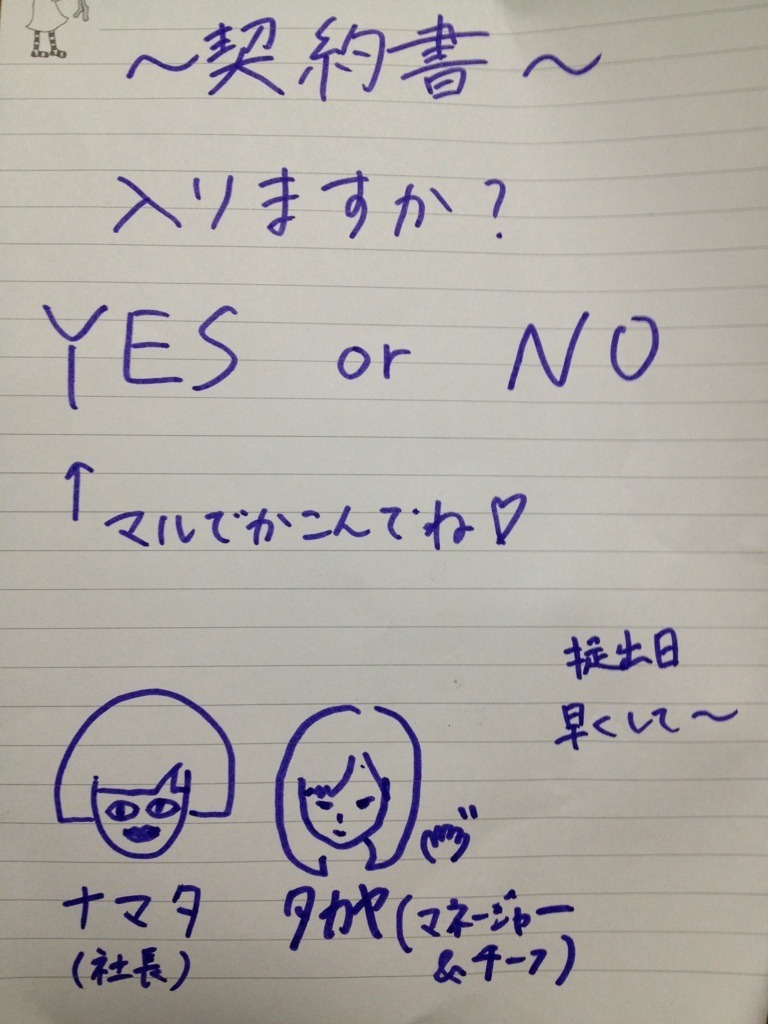 〜契約書〜
入りますか?
YES or NO
↑マルでかこんでね♡
提出日
早くして〜
ナマタ
(社長)
タカヤ(マネージャー
&チーフ)